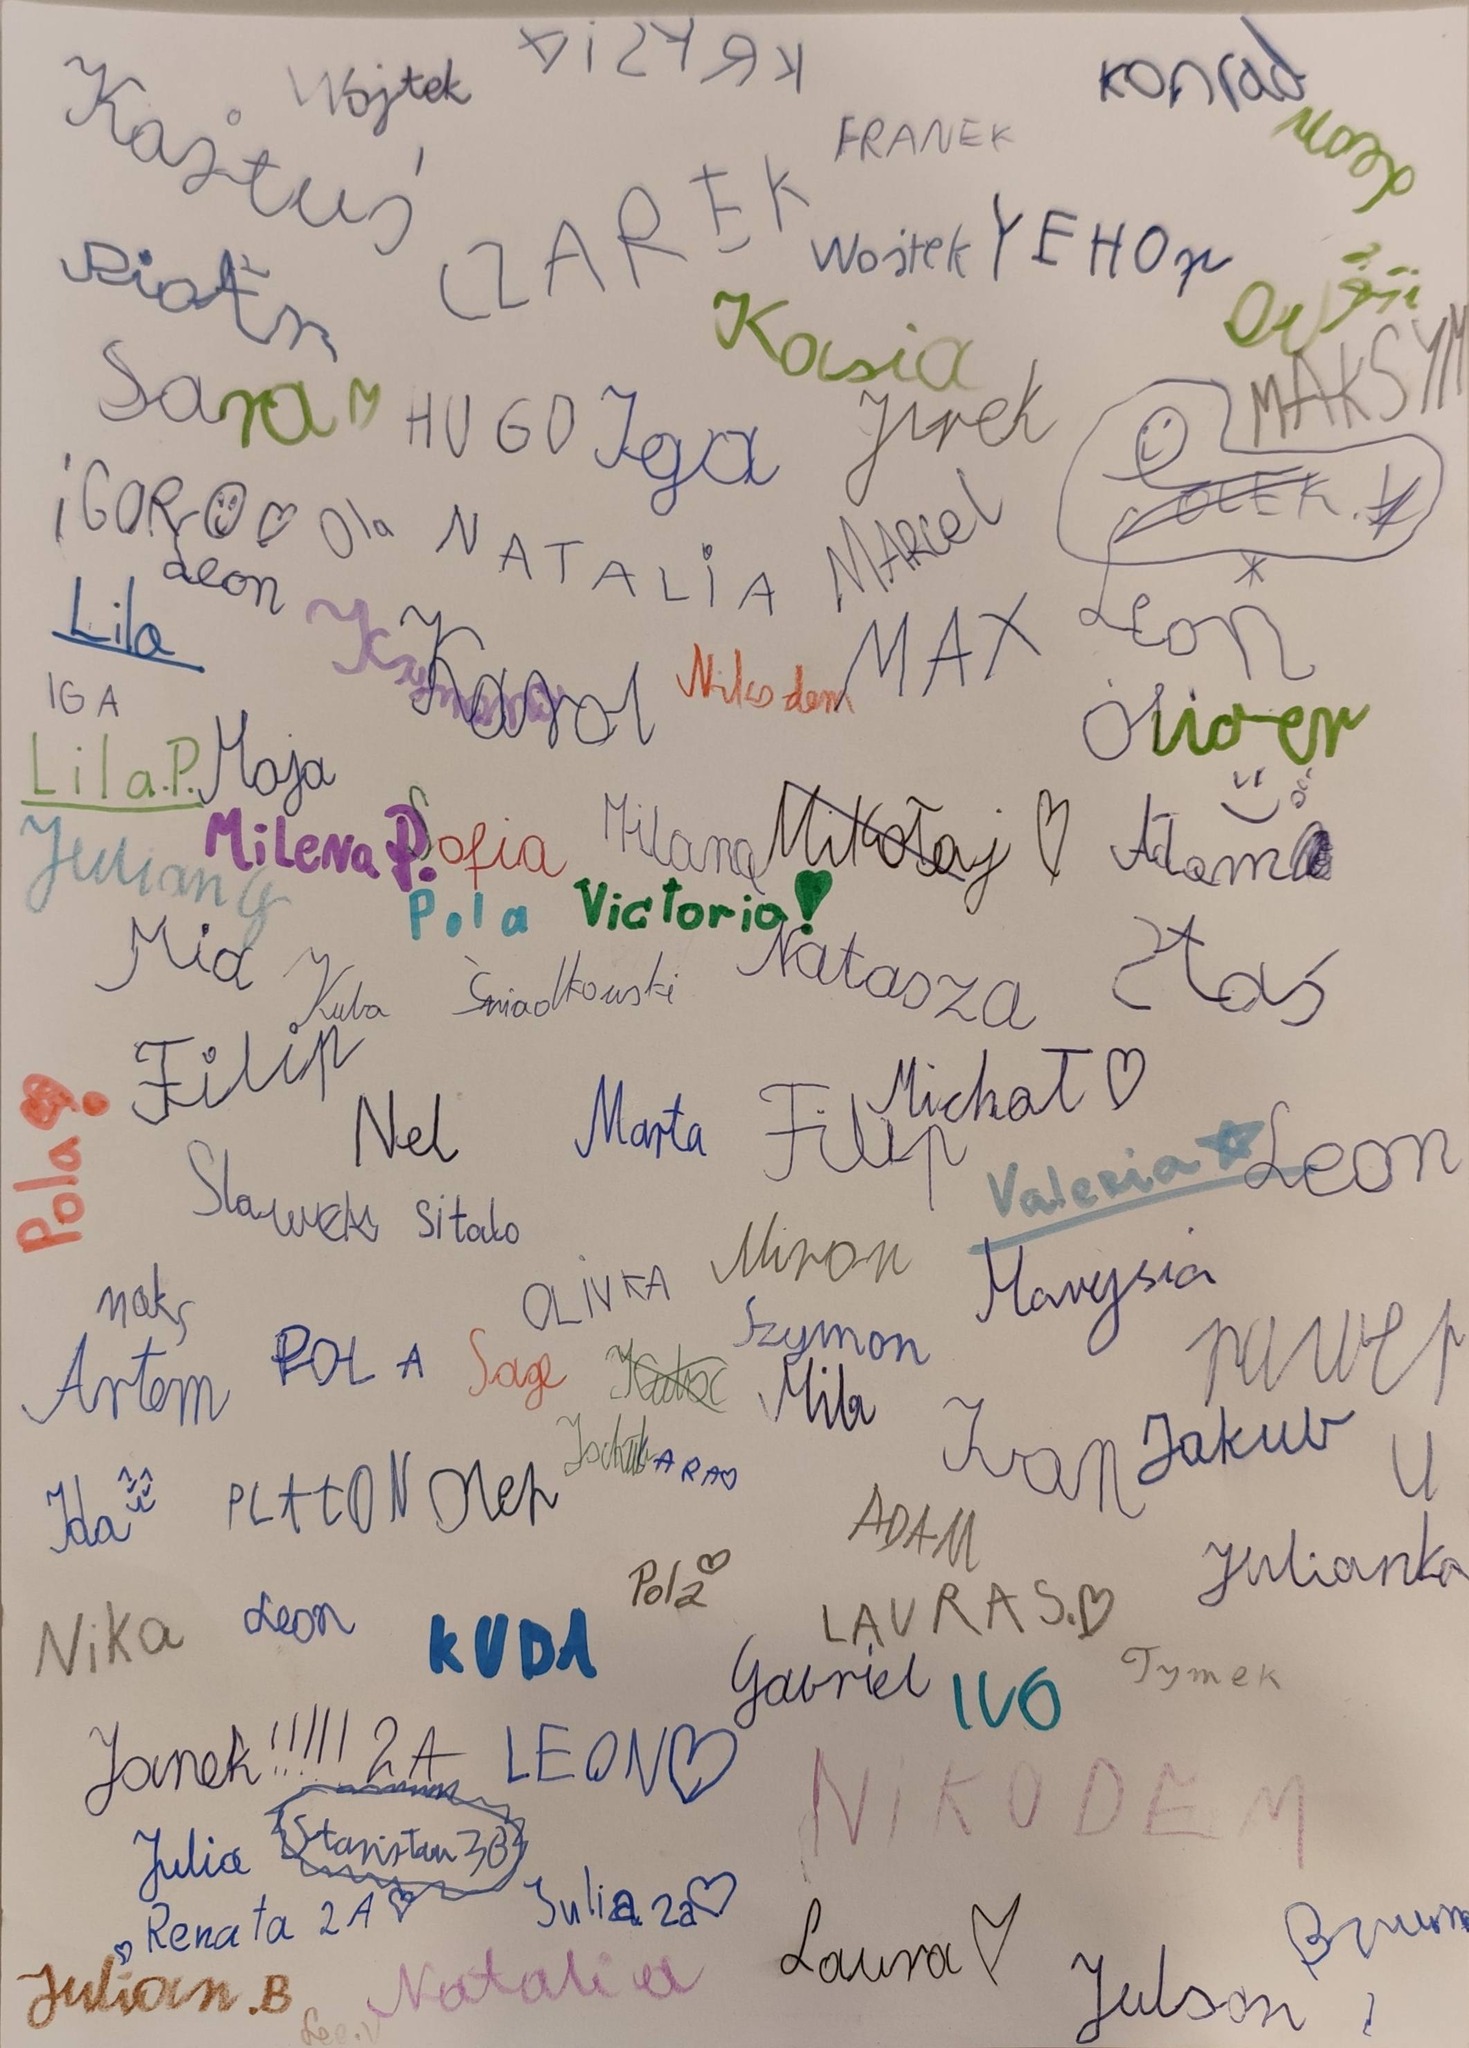 KRYZIA
Wojtek
Konrad
Kajtuś
FRANEK
CZAREK
Wojtek
Piotr
Kasia
MAKSYM
Sara
HUGO
Iga
Jurek
IGOR
Ola
NATALIA
MARCEL
OLEK.
Leon
Lila
Karol
Nikodem
MAX
Leon
IGA
Oliver
Lila.P.
Maja
Julian
Milena P.
Sofia
Milana
Mikołaj
Adam
Pola
Victoria!
Mia
Kuba
Śniadkowski
Natasza
Staś
Filip
Michał
Pola!
Nel
Marta
Filip
Valeria
Leon
Sławek
sitalo
Miron
Marysia
OLIVKA
maks
Artem
POLA
Sage
Szymon
Mila
PAWEŁ
Ivan
Jakub
U
Ida
PLATON
ADAM
Julianka
Pola
Nika
Leon
KUBA
LAURA S.
Gabriel
IVO
Tymek
Janek!!!!! 2A
LEON
NIKODEM
Julia
Stanisław 3B
Renata 2A
Julia 2a
Laura
Bruno
Julian.B
Natalia
Julson!